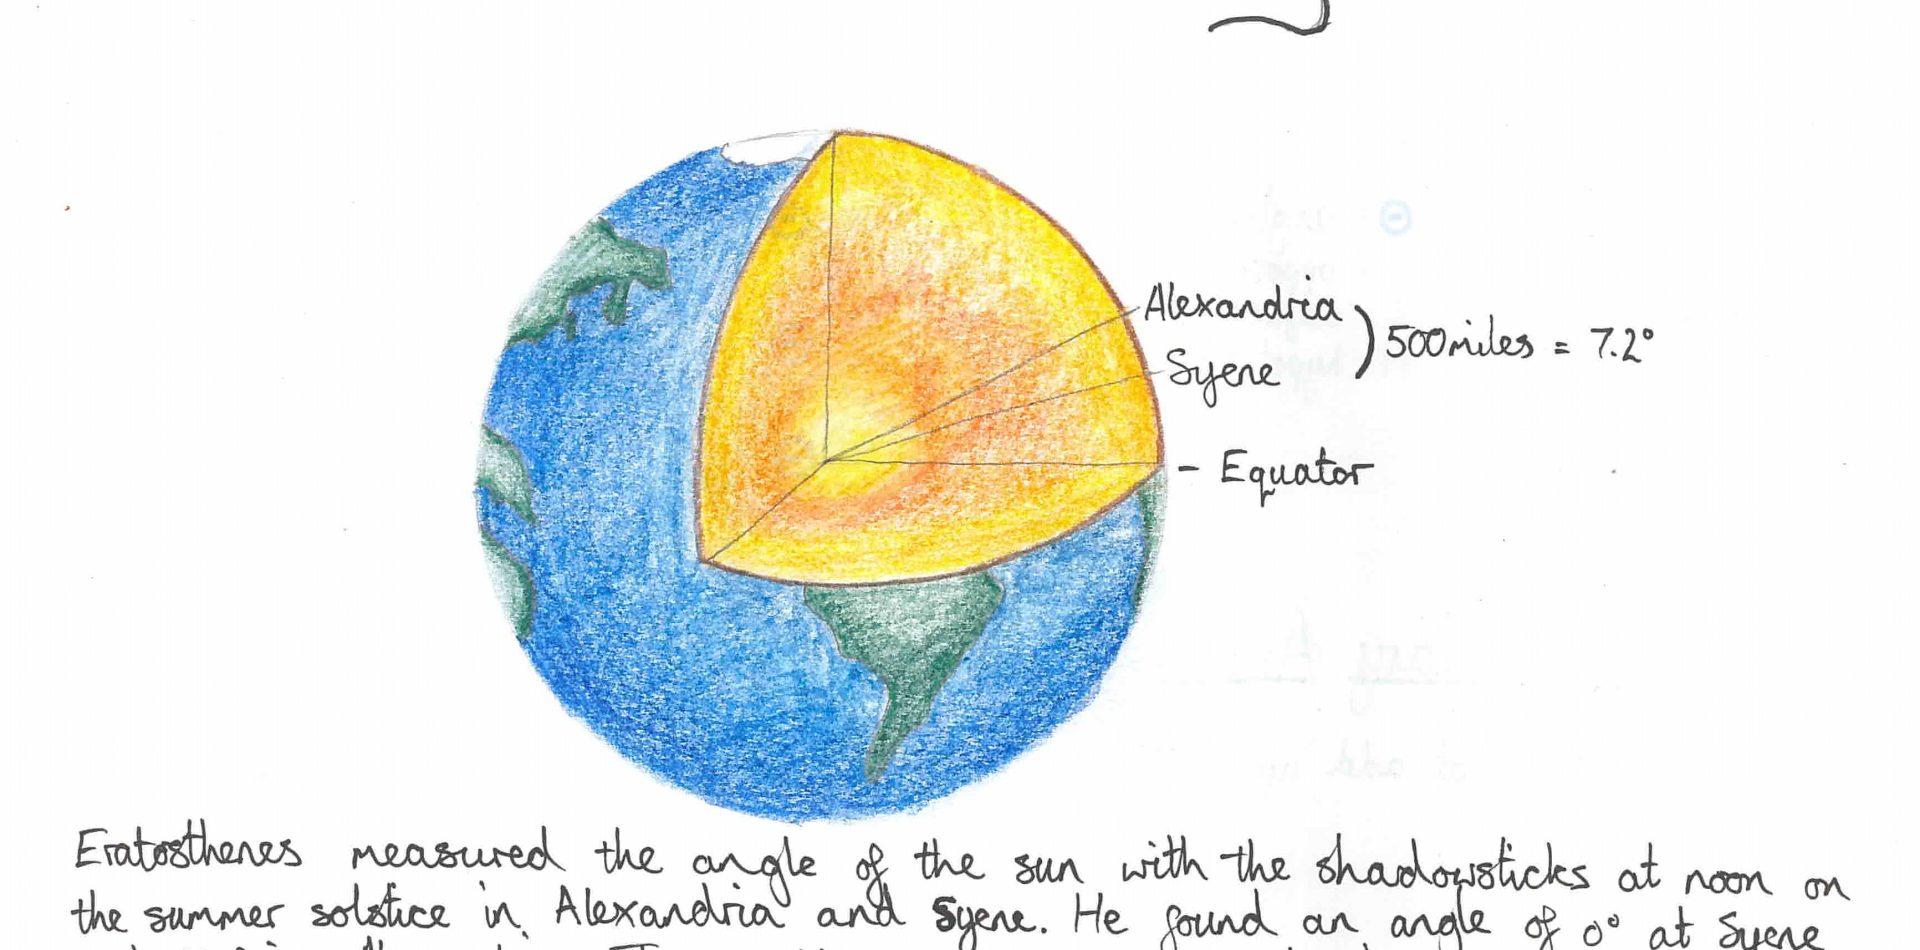 Alexandria
500 miles = 7.2°
Syene
- Equator
Eratosthenes measured the angle of the sun with the shadowsticks at noon on
the summer solstice in Alexandria and Syene. He found an angle of 0° at Syene